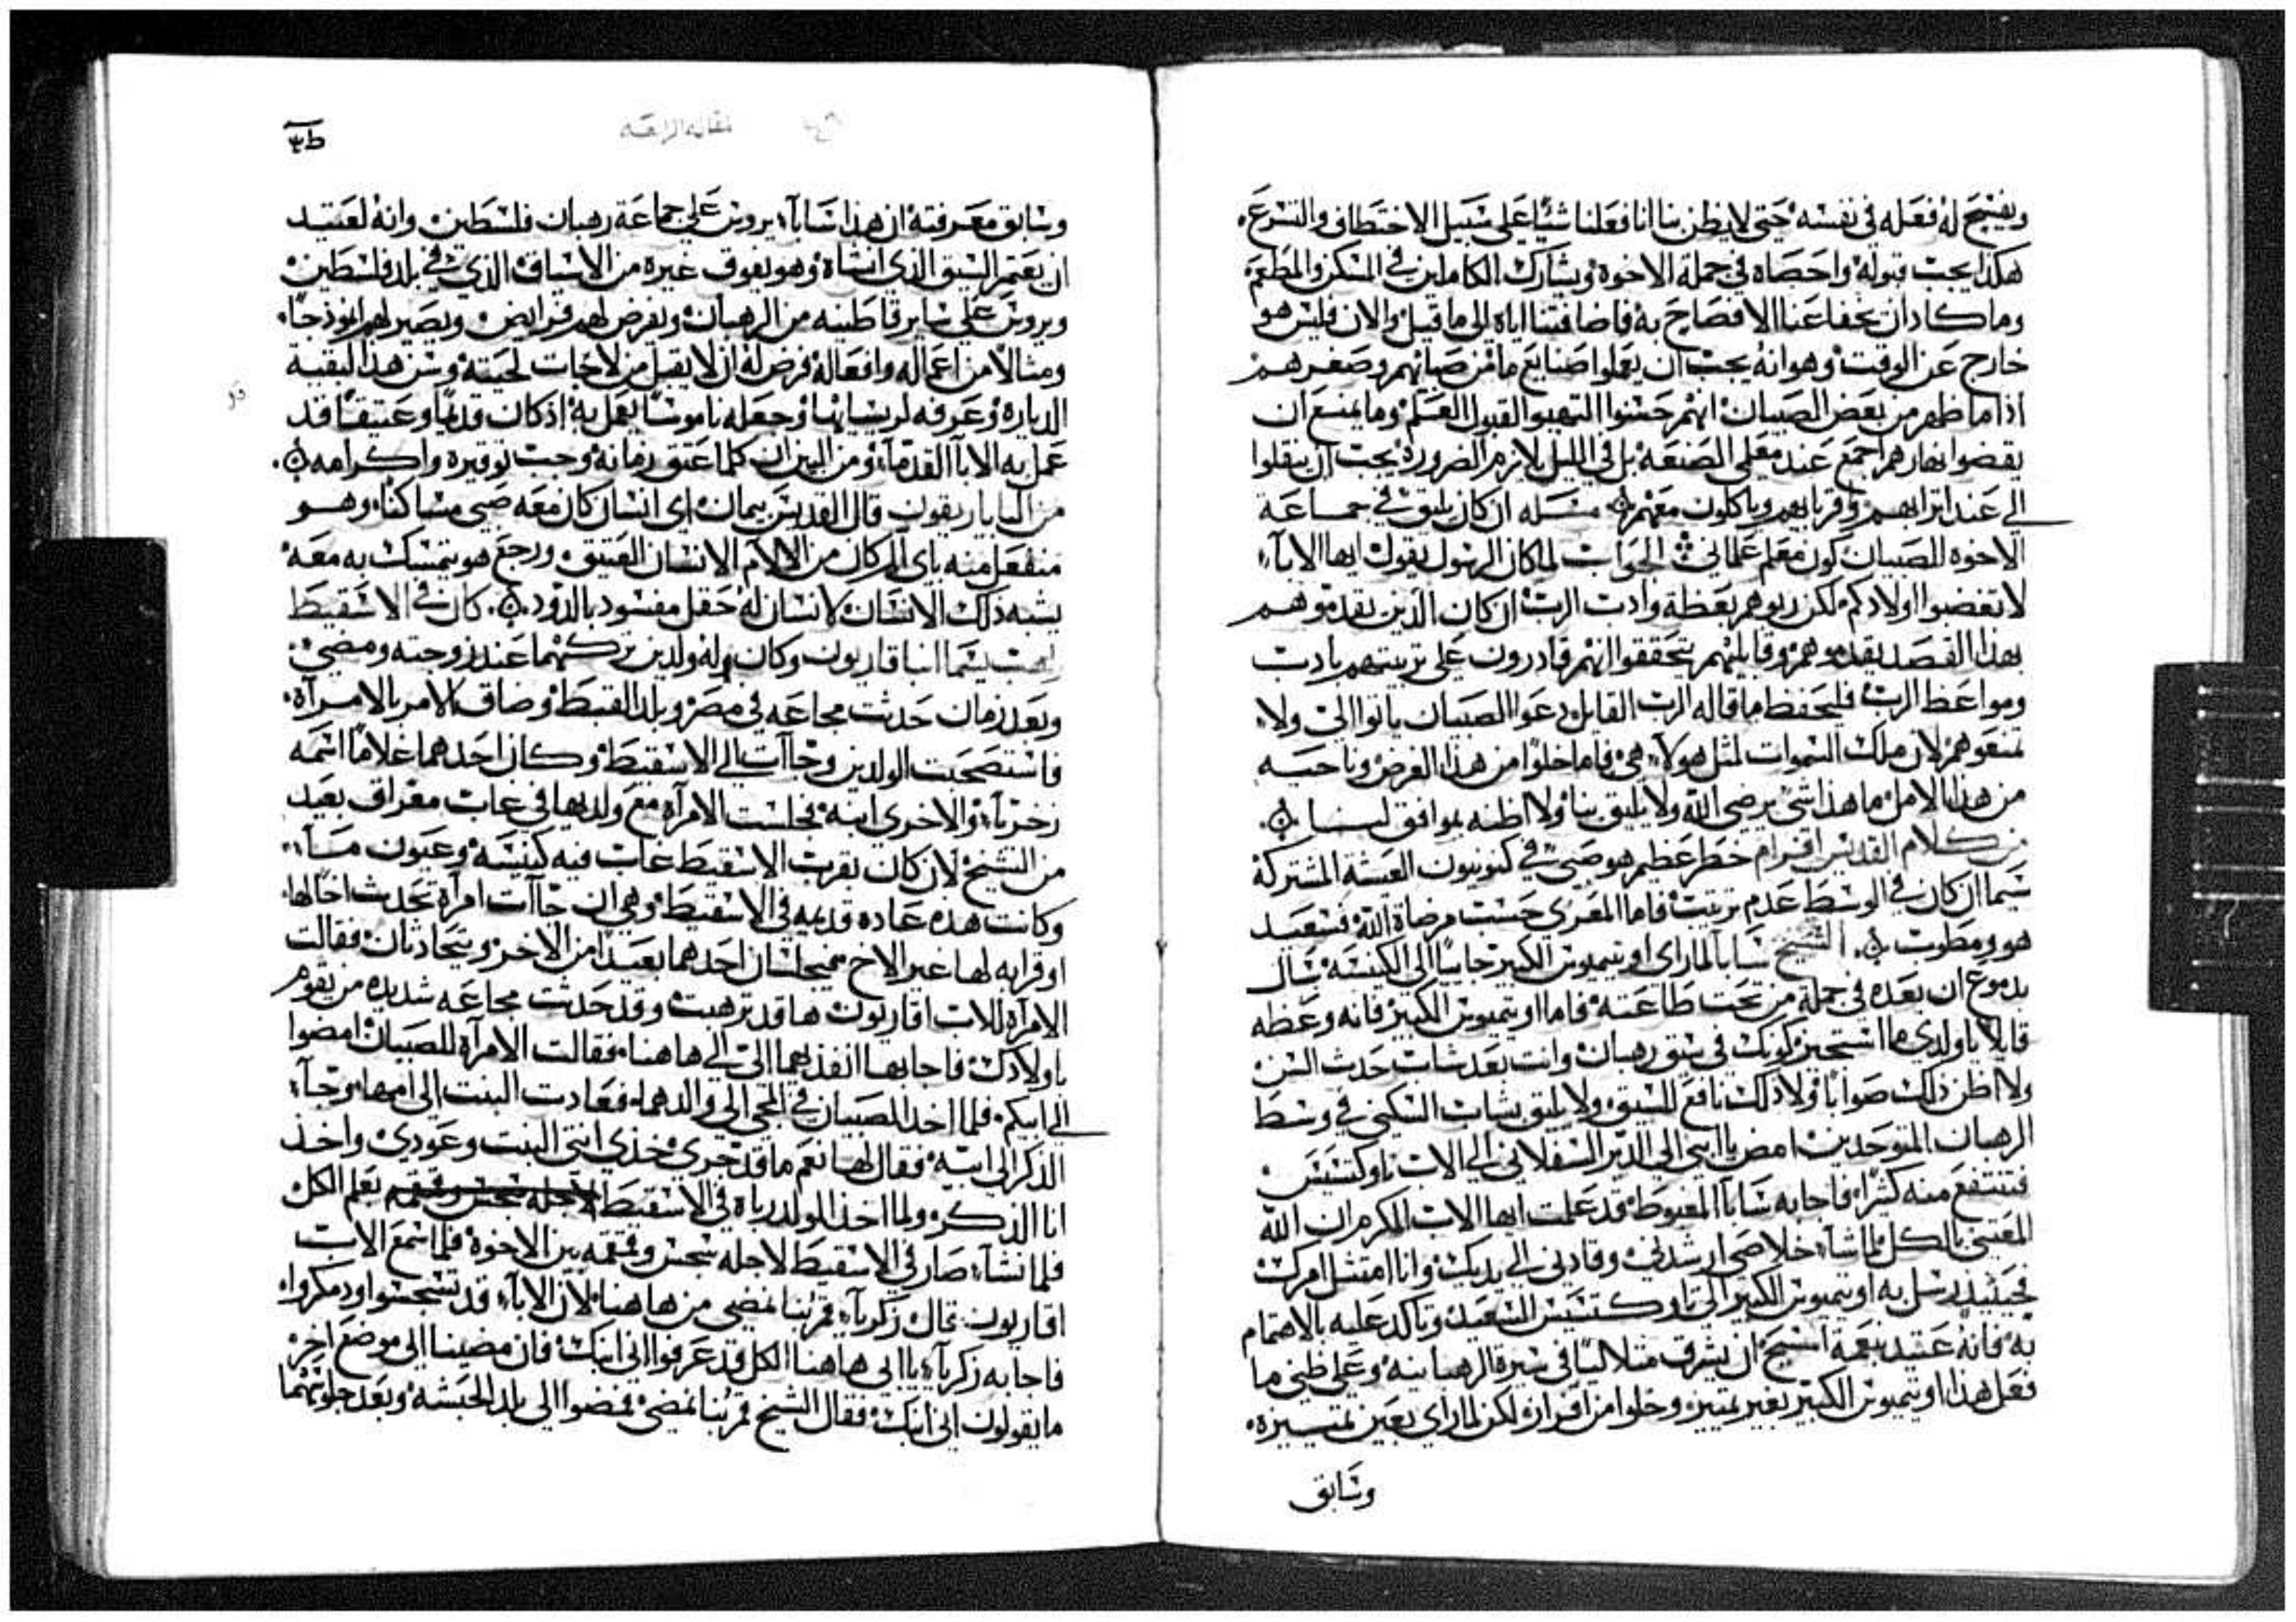 ويفسح له فعله في نفسه حتي لا يظن بنا انا فعلنا شئا علي سبيل الاختطاف والتسرع
هكذا يجب قبوله واحصاه في جملة الاخوة ويشارك الكاملين في المسكن والمطعم
وما كاد ان يخفا عنا الافصاح به فاضافتنا اياه الي ما قيل والان فليس هو
خارج عن الوقت وهو انه يجب ان يعملوا صنايع ما من صبائهم وصغرهم
اذا ما ظهر من بعض الصبيان انهم حسنوا القبول العلم وما يمنع ان
يقضوا نهارهم اجمع عند معلمي الصنعة بل في الليل يلازم الضرورة يجب ان ينقلوا
الي عند اترابهم وقربايهم وياكلون معهم مسله ان كان يليق في جماعة
الاخوه للصبيان كون معلم علماني الجواب لما كان الرسول يقول ايها الاباء
لا تغضبوا اولادكم لكن ربوهم بعظة وادب الرب ان كان الذين يقدموهم
بهذا القصد يقدموهم وقابليهم يتحققوا انهم قادرون علي تربيتهم بادب
ومواعظ الرب فليحفظ ما قاله الرب القايل دعوا الصبيان ياتوا الي ولا
تمنعوهم لان ملكت السموات لمثل هولاء هي فاما خلوا من هذا الغرض وناحيه
من هذا الامل ما هذا شي يرضي الله ولا يليق بنا ولا اظنه بموافق لنا
من كلام القديس افرام خطر عظيم هو صبي في كنوبيون العيشة المشتركة
سيما ان كان في الوسط عدم ترتيب فاما المعزي حسب مرضاة الله فسعيد
هو ومطوب الشيخ سابا لما راي اوتيميوس الكبير جايا الي الكنيسه سال
بدموع ان يعده في جملة من تحت طاعته فاما اوتيميوس الكبير فانه وعظه
قايلا يا ولدي ما استحيز كونك في سيق رهبان وانت بعد شاب حدث السن
ولا اظن ذلك صوابا ولا ذلك نافع للسيق ولا يليق بشاب السكني في وسط
الرهبان المتوحدين امض يا ابني الي الدير السفلاني الي الاب ثاوكتستس
فتنتفع منه كثيرا فاجابه سابا المغبوط قد علمت ايها الاب المكرم ان الله
المعتني بالكل لما شاء خلاصي ارشدني وقادني الي يديك وانا امتثل امرك
فحينيذ رسل به اوتيميوس الكبير الي ثاوكتستس السعيد وتاكد عليه بالاهتمام
به فانه عتيد بنعمة المسيح ان يشرق متلاليا في سيرة الرهبانيه وعلي ظني ما
فعل هذا اوتيميوس الكبير بغير تمييز وخلوا من افراز لكن لما راي بعين تمييزه
وسابق
مقاله الرابعه
وسابق معرفته ان هذا سابا يروس علي جماعة رهبان فلسطين وانه لعتيد
ان يعمر السيق الذي انشاه وهو يفوق غيره من الاسياق الذي في بلد فلسطين
ويروس علي ساير قاطنيه من الرهبان ويفرض لهم فرايض ويصير لهم انوذجا
ومثالا من اعماله وافعاله فرض له ان لا يقبل من لا جات لحيته وسن هذا لبقية
الدياره وعرفه لريسايها وجعله ناموسا يعمل به اذ كان قديما وعتيقا قد
عمل به الابا القدماء ومن البين ان كلما عتق زمانه وجب توقيره واكرامه
من الباباريقون قال القديس بيمان اي انسان كان معه صبي مساكنا وهو
منفعل منه باي الم كان من الالام الانسان العتيق ورجع هو يتمسك به معه
يشبه ذلك الانسان لانسان له حقل مفسود بالدود كان في الاسقيط
راهب يسما انبا قاريون وكان له ولدين تركهما عند زوجته ومضي
وبعد زمان حدثت مجاعه في مصر وبلد القبط وضاق الامر بالامراة
فاستصحبت الولدين وجاات الي الاسقيط وكان احدهما غلاما اسمه
زخريا والاخري ابنه فجلست الامراة مع ولديها في غاب مفراق بعيد
من الشيخ لان كان بقرب الاسقيط غاب فيه كنيسه وعيون ماء
وكانت هذه عاده قديمه في الاسقيط وهي ان جاات امراة تحدث اخا لها
او قرابه لها غير الاخ يجلسان احدهما بعيدا من الاخر ويتحادثان فقالت
الامراة للاب اقاريون ها قد ترهبت وقد حدثت مجاعه شديده من يقوم
باولادك فاجابها انفذيهما الي الي هاهنا فقالت الامراة للصبيان امضوا
الي ابيكم فلما اخد الصبيان في المجي الي والدهما فعادت البنت الي امها وجاء
الذكر الي ابيه فقال لها نعم ما قد جري خذي انتي البنت وعودي واخذ
انا الذكر ولما اخذ الولد رباه في الاسقيط يعلم الكل
فلما نشاء صار في الاسقيط لاجله سجس وقمقمه بين الاخوة فلما سمع الاب
اقاريون قال زكريا قم بنا نمضي من هاهنا لان الاباء قد تسجسوا ودمكروا
فاجابه زكريا يا ابي هاهنا الكل قد عرفوا اني ابنك فان مضينا الي موضع اخر
ما يقولون اني ابنك فقال الشيخ قم بنا نمضي فمضوا الي بلد الحبشه وبعد جلوسهما